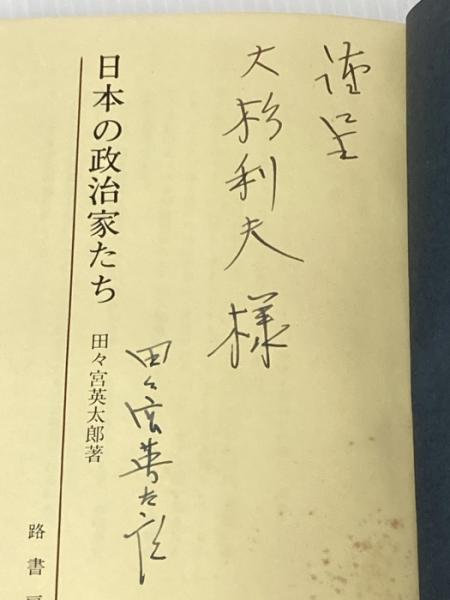 謹呈
大杉利夫様
田々宮英太郎
日本の政治家たち
田々宮英太郎著
路書房